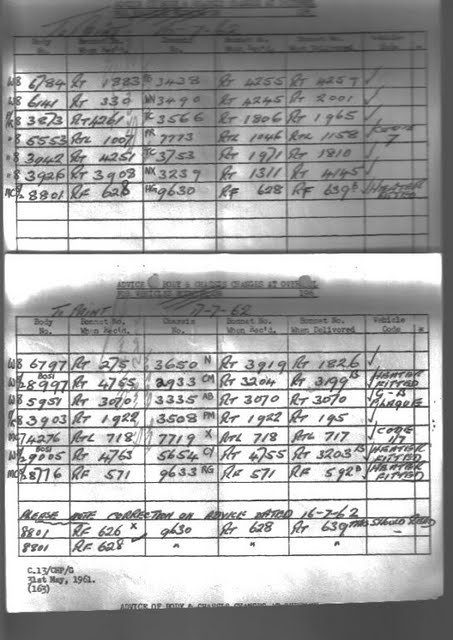 ADVICE OF BODY & CHASSIS CHANGES AT
To Paint 16-7-62
Body No. Bonnet No. When Rec'd. Chassis No. Bonnet No. When Rec'd. Bonnet No. When Delivered Vehicle Code
W8 6784 RT 1883 3438 RT 4255 RT 4257 ✓
W8 6141 RT 330 3490 RT 4245 RT 2001 ✓
3873 RT 4261 3566 RT 1806 RT 1965 ✓
" 8 5553 RTL 1007 PR 7773 RTL 1046 RTL 1158 7
" 8 3942 RT 4251 3753 RT 1971 RT 1810 ✓
" 8 3926 RT 3908 NX 3239 RT 1311 RT 4145 ✓
8801 RF 628 HG 9630 RF 628 RF 639 B HEATER FITTED
ADVICE OF BODY & CHASSIS CHANGES AT
FOR VEHICLES 196
To Paint 17-7-62
Body No. Bonnet No. When Rec'd. Chassis No. Bonnet No. When Rec'd. Bonnet No. When Delivered Vehicle Code
W8 6797 RT 275 3650 N RT 3919 RT 1826 ✓
BOSI 8997 RT 4755 2933 CM RT 3204 RT 3199 B HEATER FITTED
W8 5951 RT 3070 3335 AB RT 3070 RT 3070 G-B PLAQUE
3903 RT 1922 3508 PM RT 1922 RT 195 ✓
74276 RTL 718 7719 X RTL 718 RTL 717 CODE 1/7
BOSI 9005 RT 4763 5654 CY RT 4755 RT 3203 B HEATER FITTED
8776 RF 571 9633 RG RF 571 RF 592 B HEATER FITTED
PLEASE NOTE CORRECTION ON ADVICE DATED 16-7-62
8801 RF 626 X 9630 RT 628 RT 639 THIS SHOULD READ
8801 RF 628 " " " —
C.13/CHP/G
31st May, 1961.
(163)
ADVICE OF BODY & CHASSIS CHANGES AT